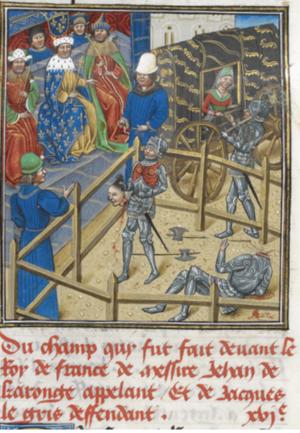 Du champ qui fut fait devant le
Roy de france de messire Jehan de
karonge apelant Et de Jacques
le gris deffendant . xvjᵉ